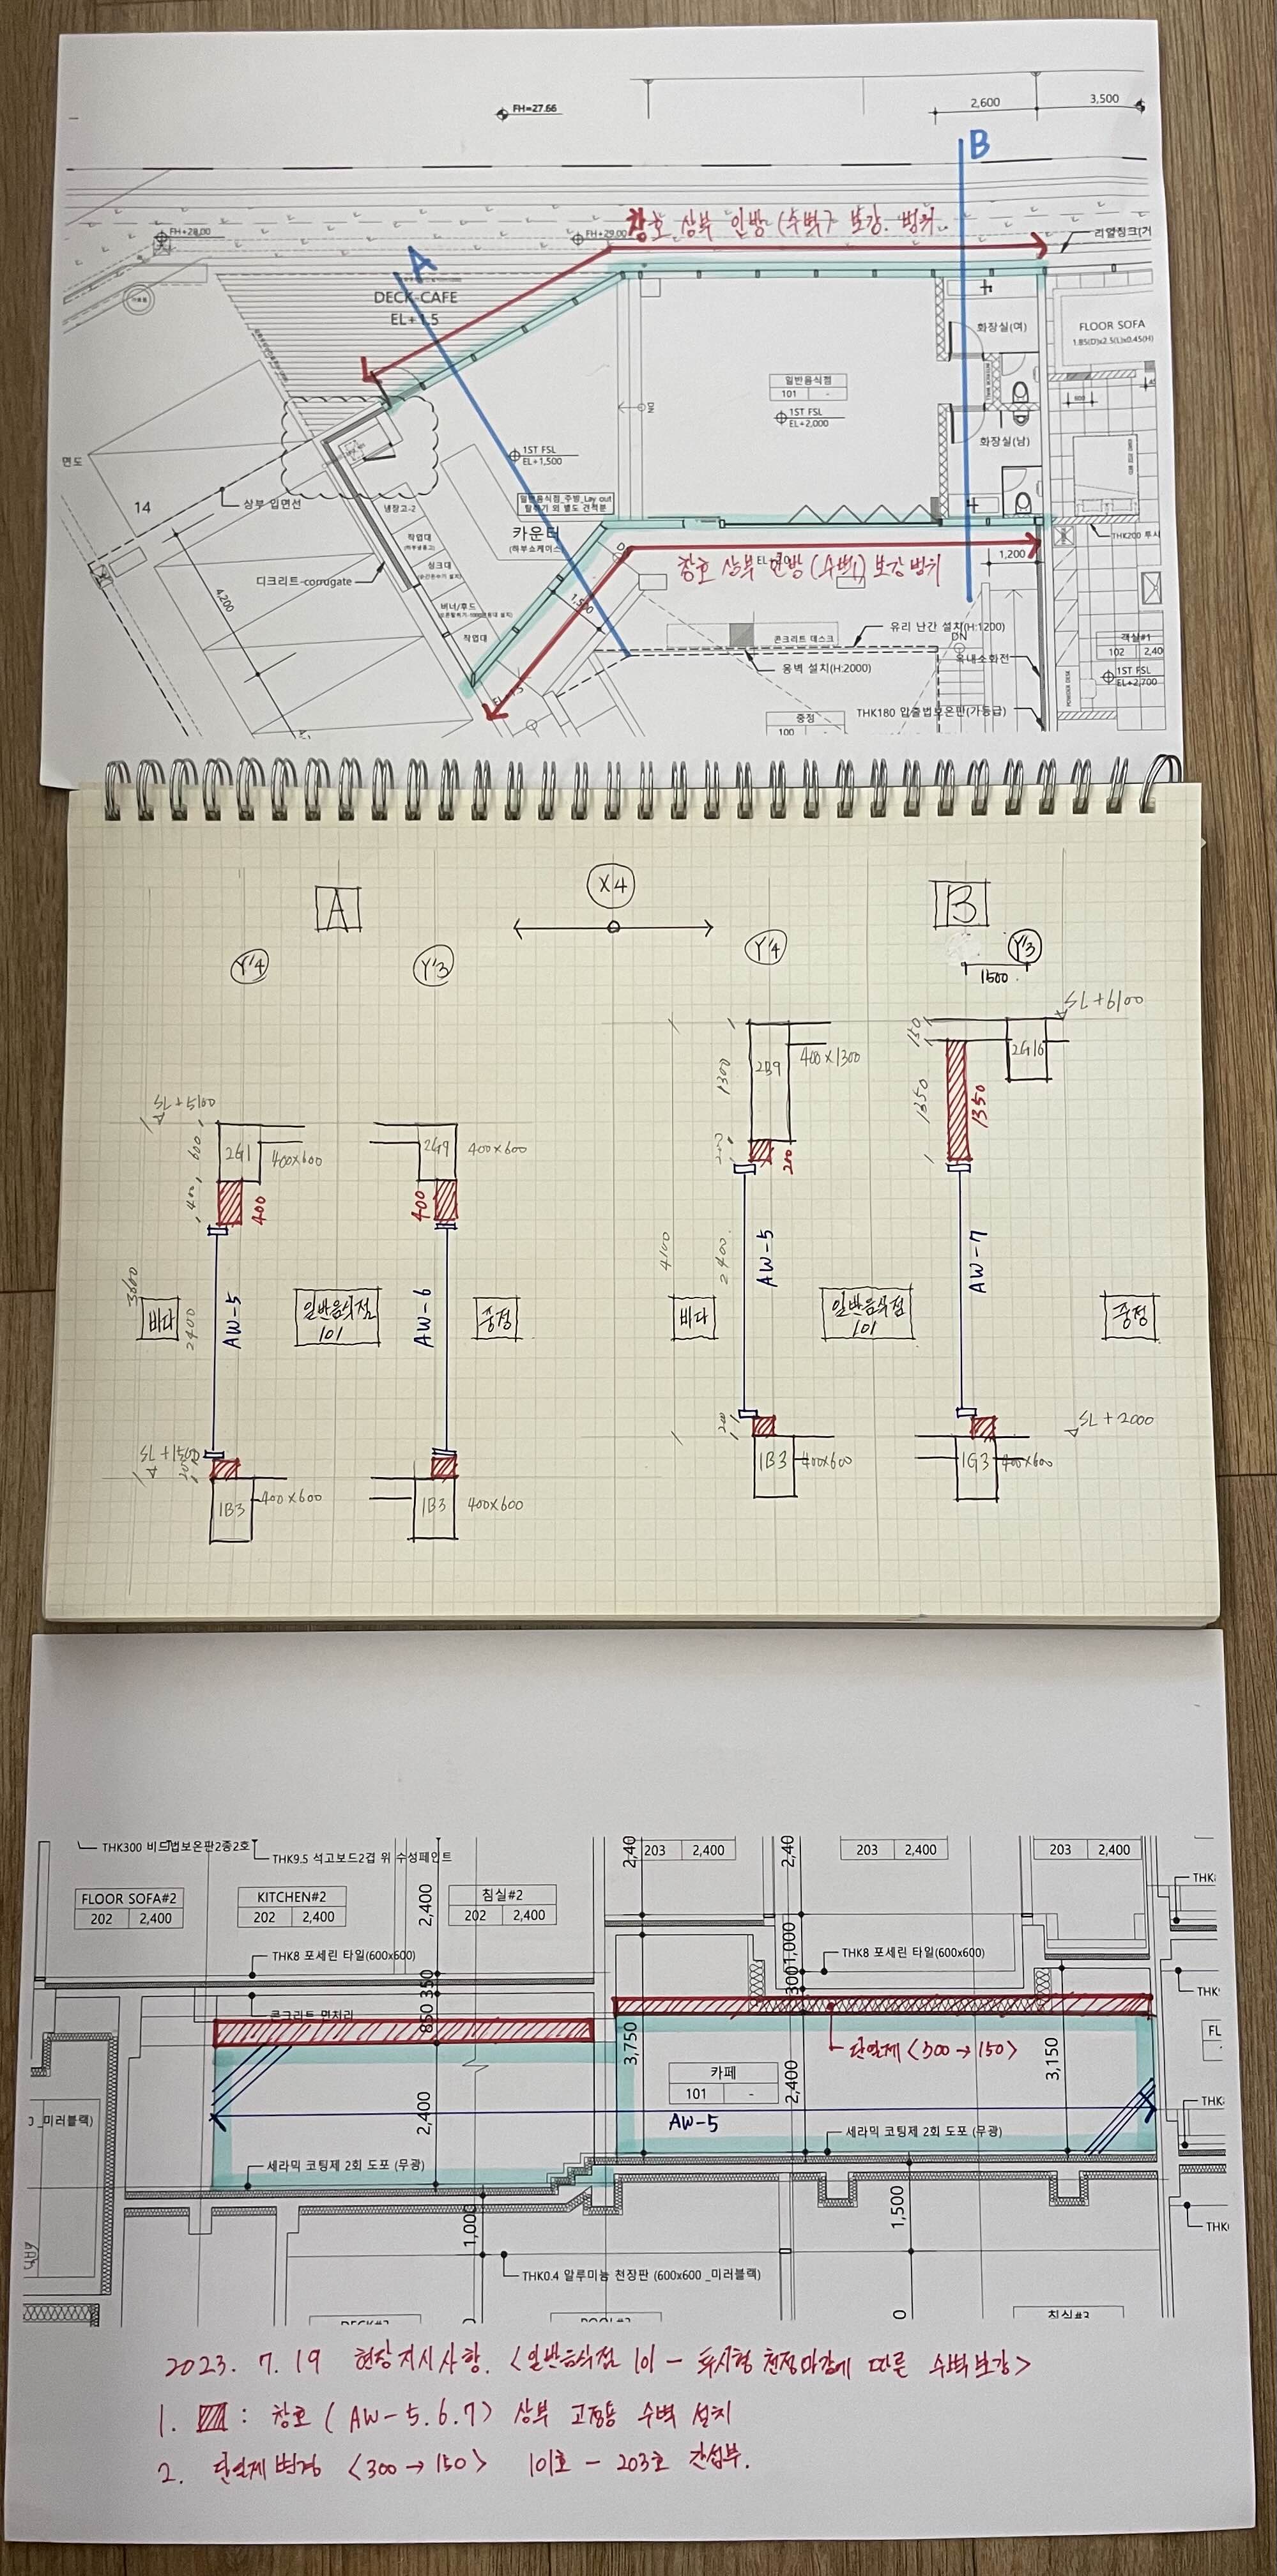 FH=27.66
2,600
3,500
B
창호 상부 인방 (수벽) 보강 범위
FH+28.00
FH+29.00
A
DECK-CAFE
EL+1.5
화장실(여)
FLOOR SOFA
1.85(D)x2.5(L)x0.45(H)
일반음식점
101 -
1ST FSL
EL+2,000
DN
600
화장실(남)
면도
14
상부 입면선
1ST FSL
EL+1,500
일반음식점_주방_Lay out
냉장고-2
카운터
(하부쇼케이스)
작업대
싱크대
디크리트-corrugate
버너/후드
작업대
4,200
1,500
창호 상부 인방 (수벽) 보강 범위
1,200
THK200 투시
유리 난간 설치(H:1200)
콘크리트 데스크
DN
옥내소화전
옹벽 설치(H:2000)
객실#1
102 2,40
1ST FSL
EL+2,700
POWDER DESK
중정
100
THK180 압출법보온판(가등급)
A
X4
B
Y'4
Y'3
Y'4
Y'3
1500
SL+6100
150
2B9
400x1300
2G16
1300
1350
1350
SL+5100
600
2G1
400x600
2G9
400x600
200
400
400
400
3600
바다
2400
AW-5
일반음식점
101
AW-6
중정
4100
바다
2400
AW-5
일반음식점
101
AW-7
중정
SL+1500
200
1B3
400x600
1B3
400x600
200
1B3
400x600
1G3
400x600
SL+2000
THK300 비드법보온판2종2호
THK9.5 석고보드2겹 위 수성페인트
FLOOR SOFA#2
202 2,400
KITCHEN#2
202 2,400
침실#2
202 2,400
2,400
2,40
203 2,400
2,40
203 2,400
203 2,400
THK8 포세린 타일(600x600)
THK8 포세린 타일(600x600)
콘크리트 면처리
350
850
1,000
300
단열재 <300→150>
3,750
3,150
카페
101 -
2,400
2,400
AW-5
_미러블랙)
세라믹 코팅제 2회 도포 (무광)
세라믹 코팅제 2회 도포 (무광)
1,000
1,500
THK0.4 알루미늄 천장판 (600x600 _미러블랙)
2023. 7. 19 현장지시사항. <일반음식점 101 - 투시형 천정마감에 따른 수벽보강>
1. : 창호 (AW-5.6.7) 상부 고정용 수벽 설치
2. 단열재변경 <300→150> 101호 - 203호 간섭부.